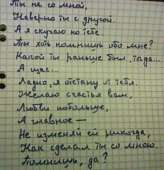 Ты не со мной,
Наверно ты с другой.
А я скучаю по тебе
Ты хоть помнишь обо мне?
Какой ты раньше был, тада...
А щас...
Ладно, я отстану от тебя.
Желаю счастья вам,
Любви побольше,
А главное —
Не изменяй ей никогда,
Как сделал ты со мною.
Помнишь, да?